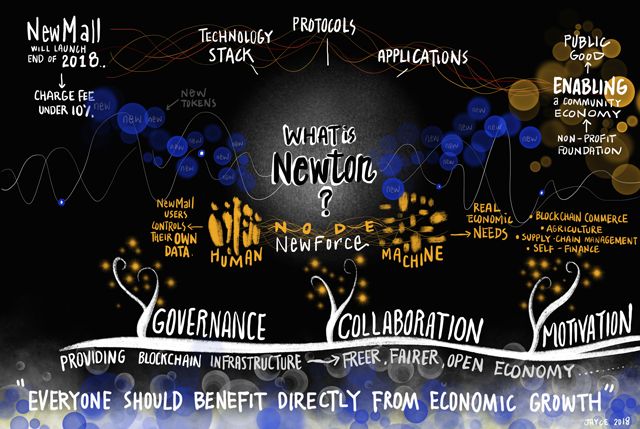 NewMall
WILL LAUNCH
END OF 2018..
CHARGE FEE
UNDER 10%.
NEW
TOKENS
TECHNOLOGY
STACK
PROTOCOLS
APPLICATIONS
PUBLIC
GOOD
ENABLING
a COMMUNITY
ECONOMY
NON-PROFIT
FOUNDATION
new
new
new
new
new
new
new
new
new
new
new
new
new
WHAT is
Newton
?
NewMall
USERS
CONTROLS
THEIR OWN
DATA.
HUMAN
NODE
NewForce
MACHINE
REAL
ECONOMIC
NEEDS
• BLOCKCHAIN COMMERCE
• AGRICULTURE
• SUPPLY-CHAIN MANAGEMENT
• SELF-FINANCE
GOVERNANCE
COLLABORATION
MOTIVATION
PROVIDING BLOCKCHAIN INFRASTRUCTURE → FREER, FAIRER, OPEN ECONOMY.........
"EVERYONE SHOULD BENEFIT DIRECTLY FROM ECONOMIC GROWTH"
JAYCE 2018